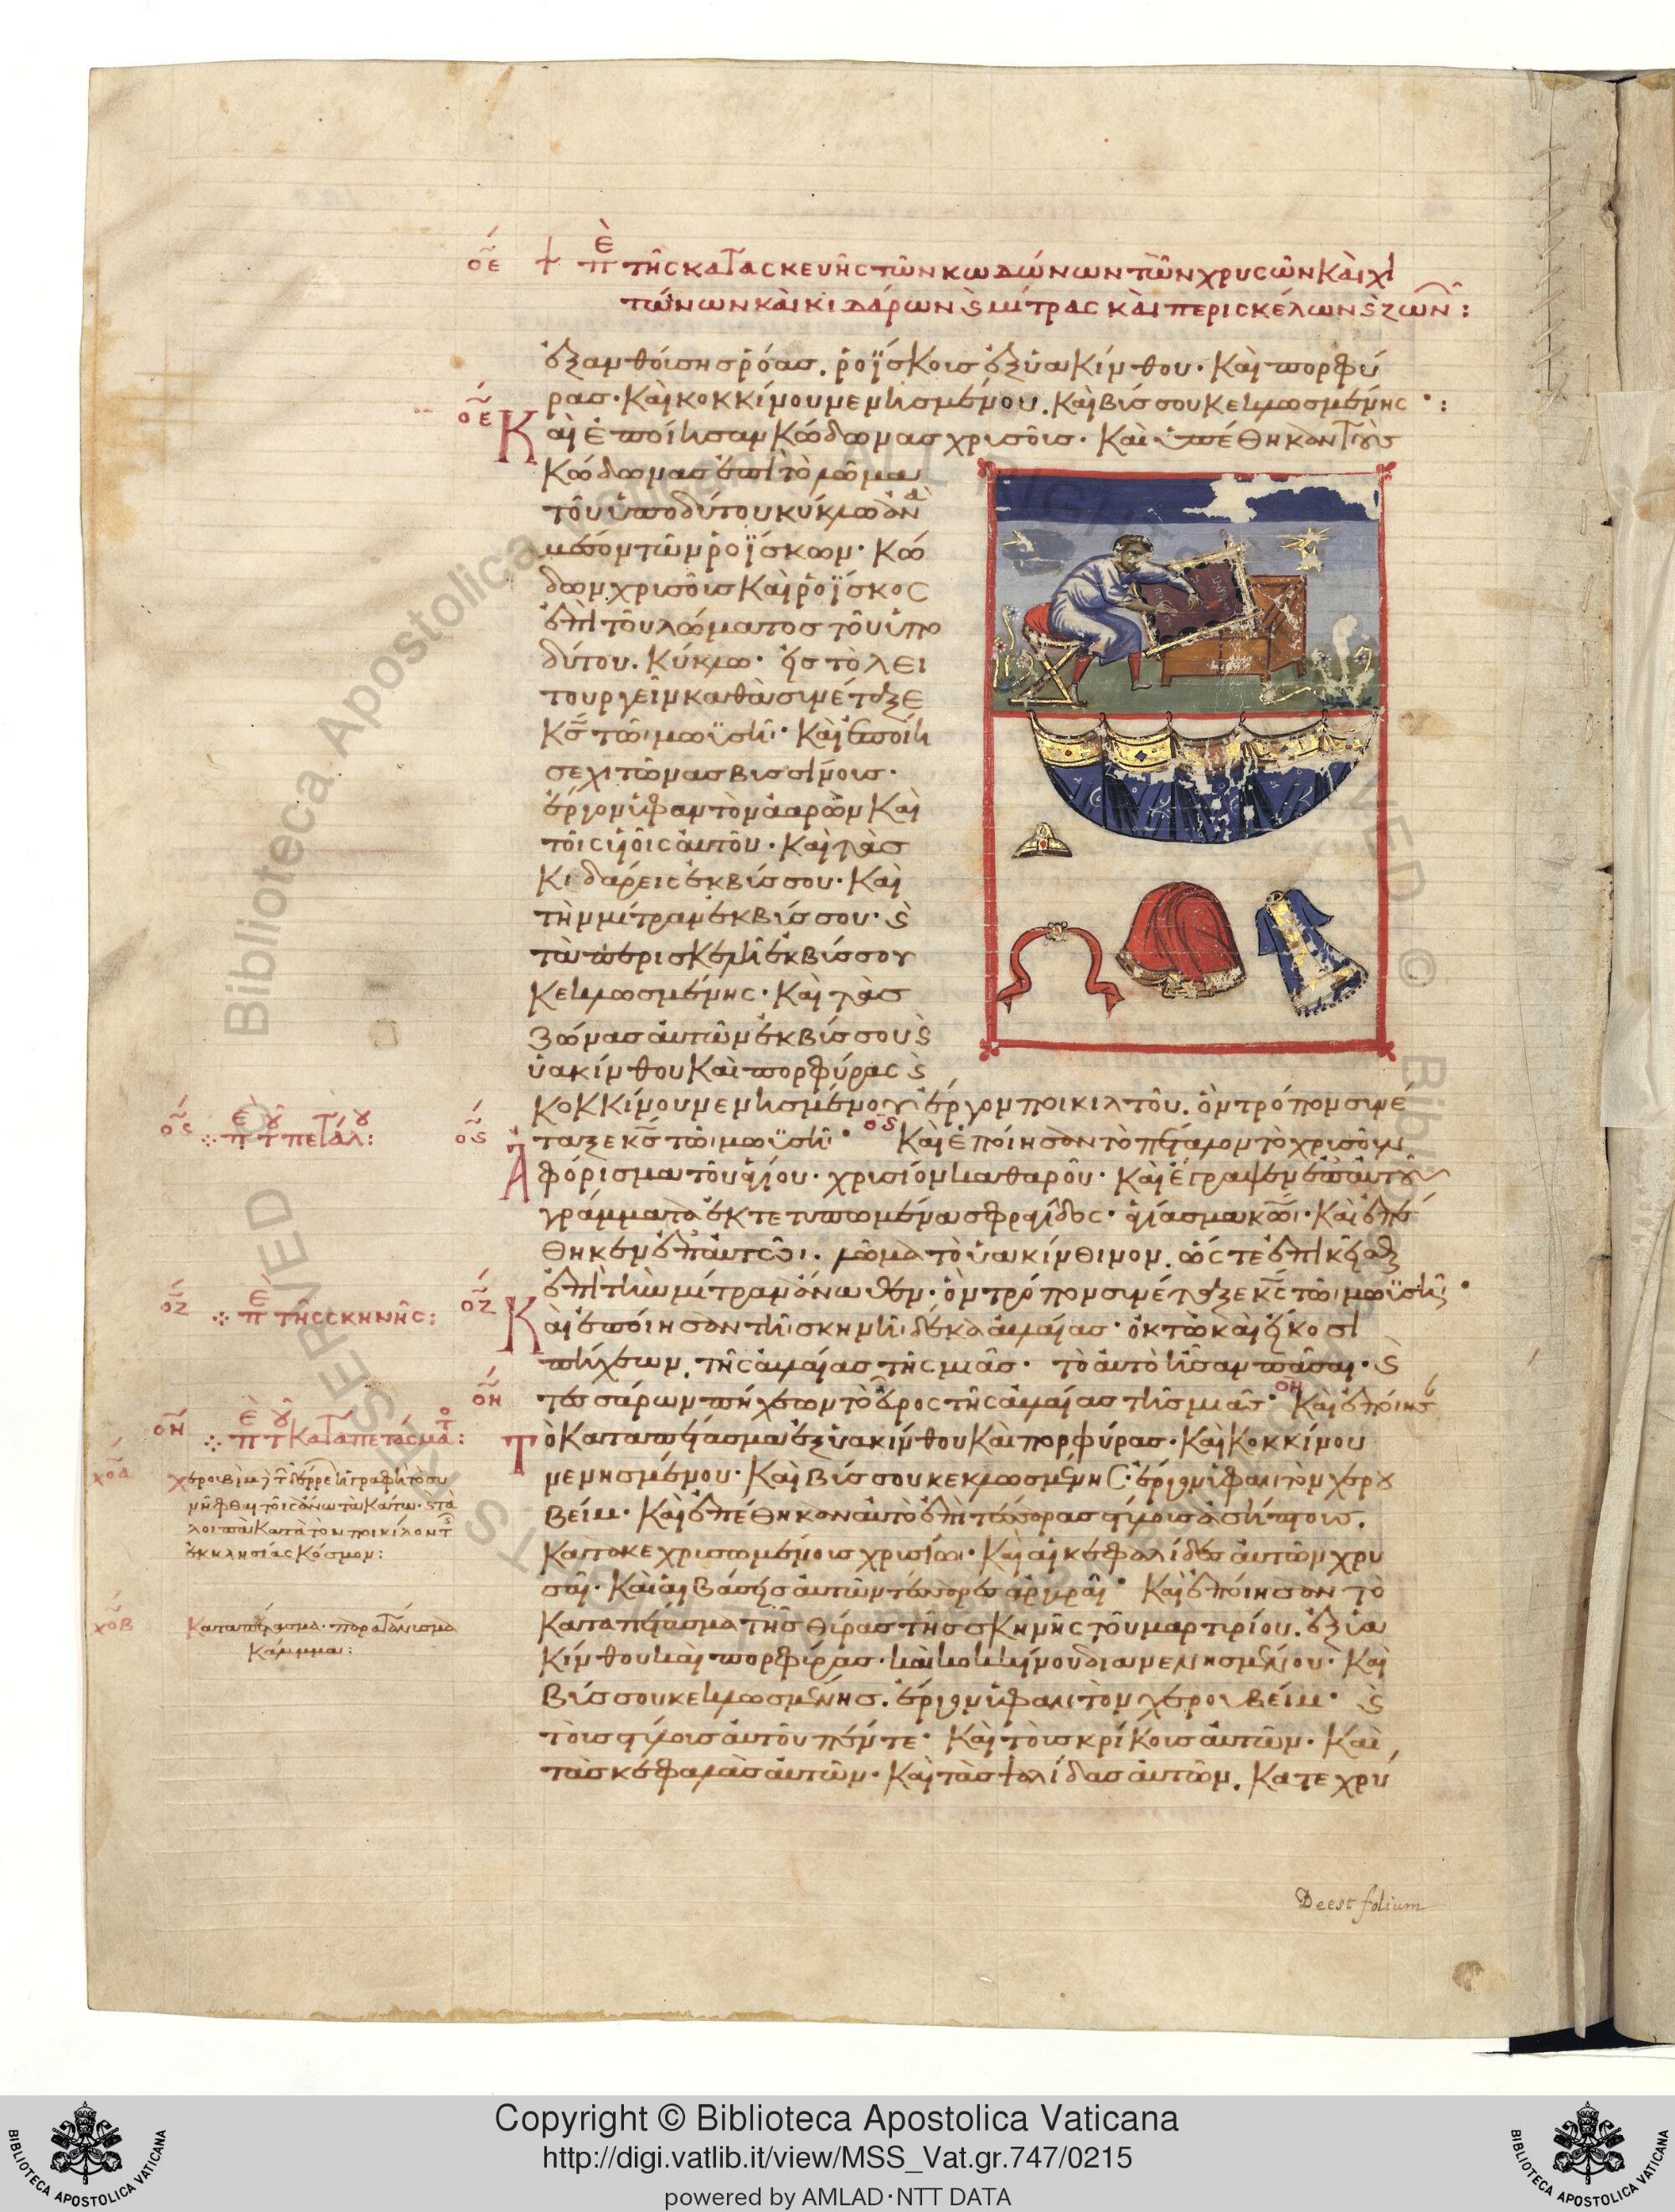 ο͂ε + πε τῆς κατασκευῆς τῶν κωδώνων τῶν χρυσῶν καὶ χι
τώνων καὶ κιδάρων ϛ μίτρας καὶ περισκέλων ϛ ζων:
ἐξανθούσης ρόας. ροΐσκοις ἐξ ὑακίνθου· καὶ πορφύ
ρας· καὶ κοκκίνου νενησμένου. καὶ βίσσου κεκλωσμένης·:
ο͂ε Καὶ ἐποίησαν κώδωνας χρισοῖς· καὶ ὑπέθηκαν τοὺς
κώδωνας ἐπὶ τὸ λῶμα
τοῦ ὑποδύτου κύκλω ἀνὰ
μέσον τῶν ροΐσκων· κώ
δων χρισοῖς καὶ ροΐσκος
ἐπὶ τοῦ λώματος τοῦ ὑπο
δύτου. κύκλω· εἰς τὸ λει
τουργεῖν καθὰ συνέταξε
κϛ τῶ μωϋσῆ· καὶ ἐποίη
σε χιτῶνας βισσίνοις·
ἔργον ὑφαντὸν ἀαρὼν καὶ
τοῖς υἱοῖς αὐτοῦ· καὶ τὰς
κιδάρεις ἐκ βίσσου· καὶ
τὴν μίτραν ἐκ βίσσου· ϛ
τὰ περισκελῆ ἐκ βίσσου
κεκλωσμένης· καὶ τὰς
ζώνας αὐτῶν ἐκ βίσσου ϛ
ὑακίνθου καὶ πορφύρας ϛ
κοκκίνου νενησμένου ἔργον ποικιλτοῦ. ὃν τρόπον συνέ
ο͂ϛ πε τοῦ πετάλου:
ο͂ϛ ταξε κς τῶ μωϋσῆ· οϛ Καὶ ἐποίησαν τὸ πέταλον τὸ χρισοῦν
Ἀφόρισμα τοῦ ἁγίου· χρισίον καθαροῦ· καὶ ἔγραψεν ἐπ αὐτοῦ
γράμματα ἐκτετυπωμένα σφραγίδος· ἁγίασμα κω· καὶ ἐπέ
θηκεν ἐπ αὐτῶι. λῶμα τὸ ὑακίνθινον. ὥστε ἐπικεῖσθαι
ἐπὶ τὴν μίτραν ἄνωθεν· ὃν τρόπον συνέταξε κς τῶ μωϋσῆ·
ο͂ζ πε τῆς σκηνῆς:
ο͂ζ Καὶ ἐποίησαν τῆ σκηνῆ δέκα αὐλαίας· ὀκτὼ καὶ εἴκοσι
πήχεων. τῆς αὐλαίας τῆς μιᾶς· τὸ αὐτὸ ἦσαν πᾶσαι· ϛ
ο͂η τεσσάρων πήχεων τὸ εὖρος τῆς αὐλαίας τῆς μιᾶς· οη Καὶ ἐποίησ
ο͂η πε τοῦ καταπετάσματος:
Τὸ καταπέτασμα ἐξ ὑακίνθου καὶ πορφύρας· καὶ κοκκίνου
νενησμένου· καὶ βίσσου κεκλωσμένης· ἔργον ὑφαντὸν χερου
βείμ· καὶ ἐπέθηκαν αὐτὸ ἐπὶ τέσσορας στύλοις ἀσήπτοις.
κατακεχρισωμένοις χρισίω· καὶ αἱ κεφαλίδες αὐτῶν χρυ
σαῖ· καὶ αἱ βάσεις αὐτῶν τέσσαρες ἀργυραῖ· Καὶ ἐποίησαν τὸ
καταπέτασμα τῆς θίρας τῆς σκηνῆς τοῦ μαρτιρίου. ἐξ ὑα
κίνθου καὶ πορφίρας· καὶ κοκκίνου διανενησμένου· καὶ
βίσσου κεκλωσμένης. ἔργον ὑφαντὸν χερουβείμ· ϛ
τοῖς στύλοις αὐτοῦ πέντε· καὶ τοῖς κρίκοις αὐτῶν· καὶ
τὰς κεφαλὰς αὐτῶν· καὶ τὰς ψαλίδας αὐτῶν. κατεχρύ
χοα
ἐκκλησίας κόσμον:
χοβ Καταπέτασμα· παρατάνισμα
κάλυμμα:
Deest folium
Biblioteca Apostolica Vaticana
Copyright © Biblioteca Apostolica Vaticana
http://digi.vatlib.it/view/MSS_Vat.gr.747/0215
powered by AMLAD·NTT DATA
BIBLIOTECA APOSTOLICA VATICANA
BIBLIOTECA APOSTOLICA VATICANA